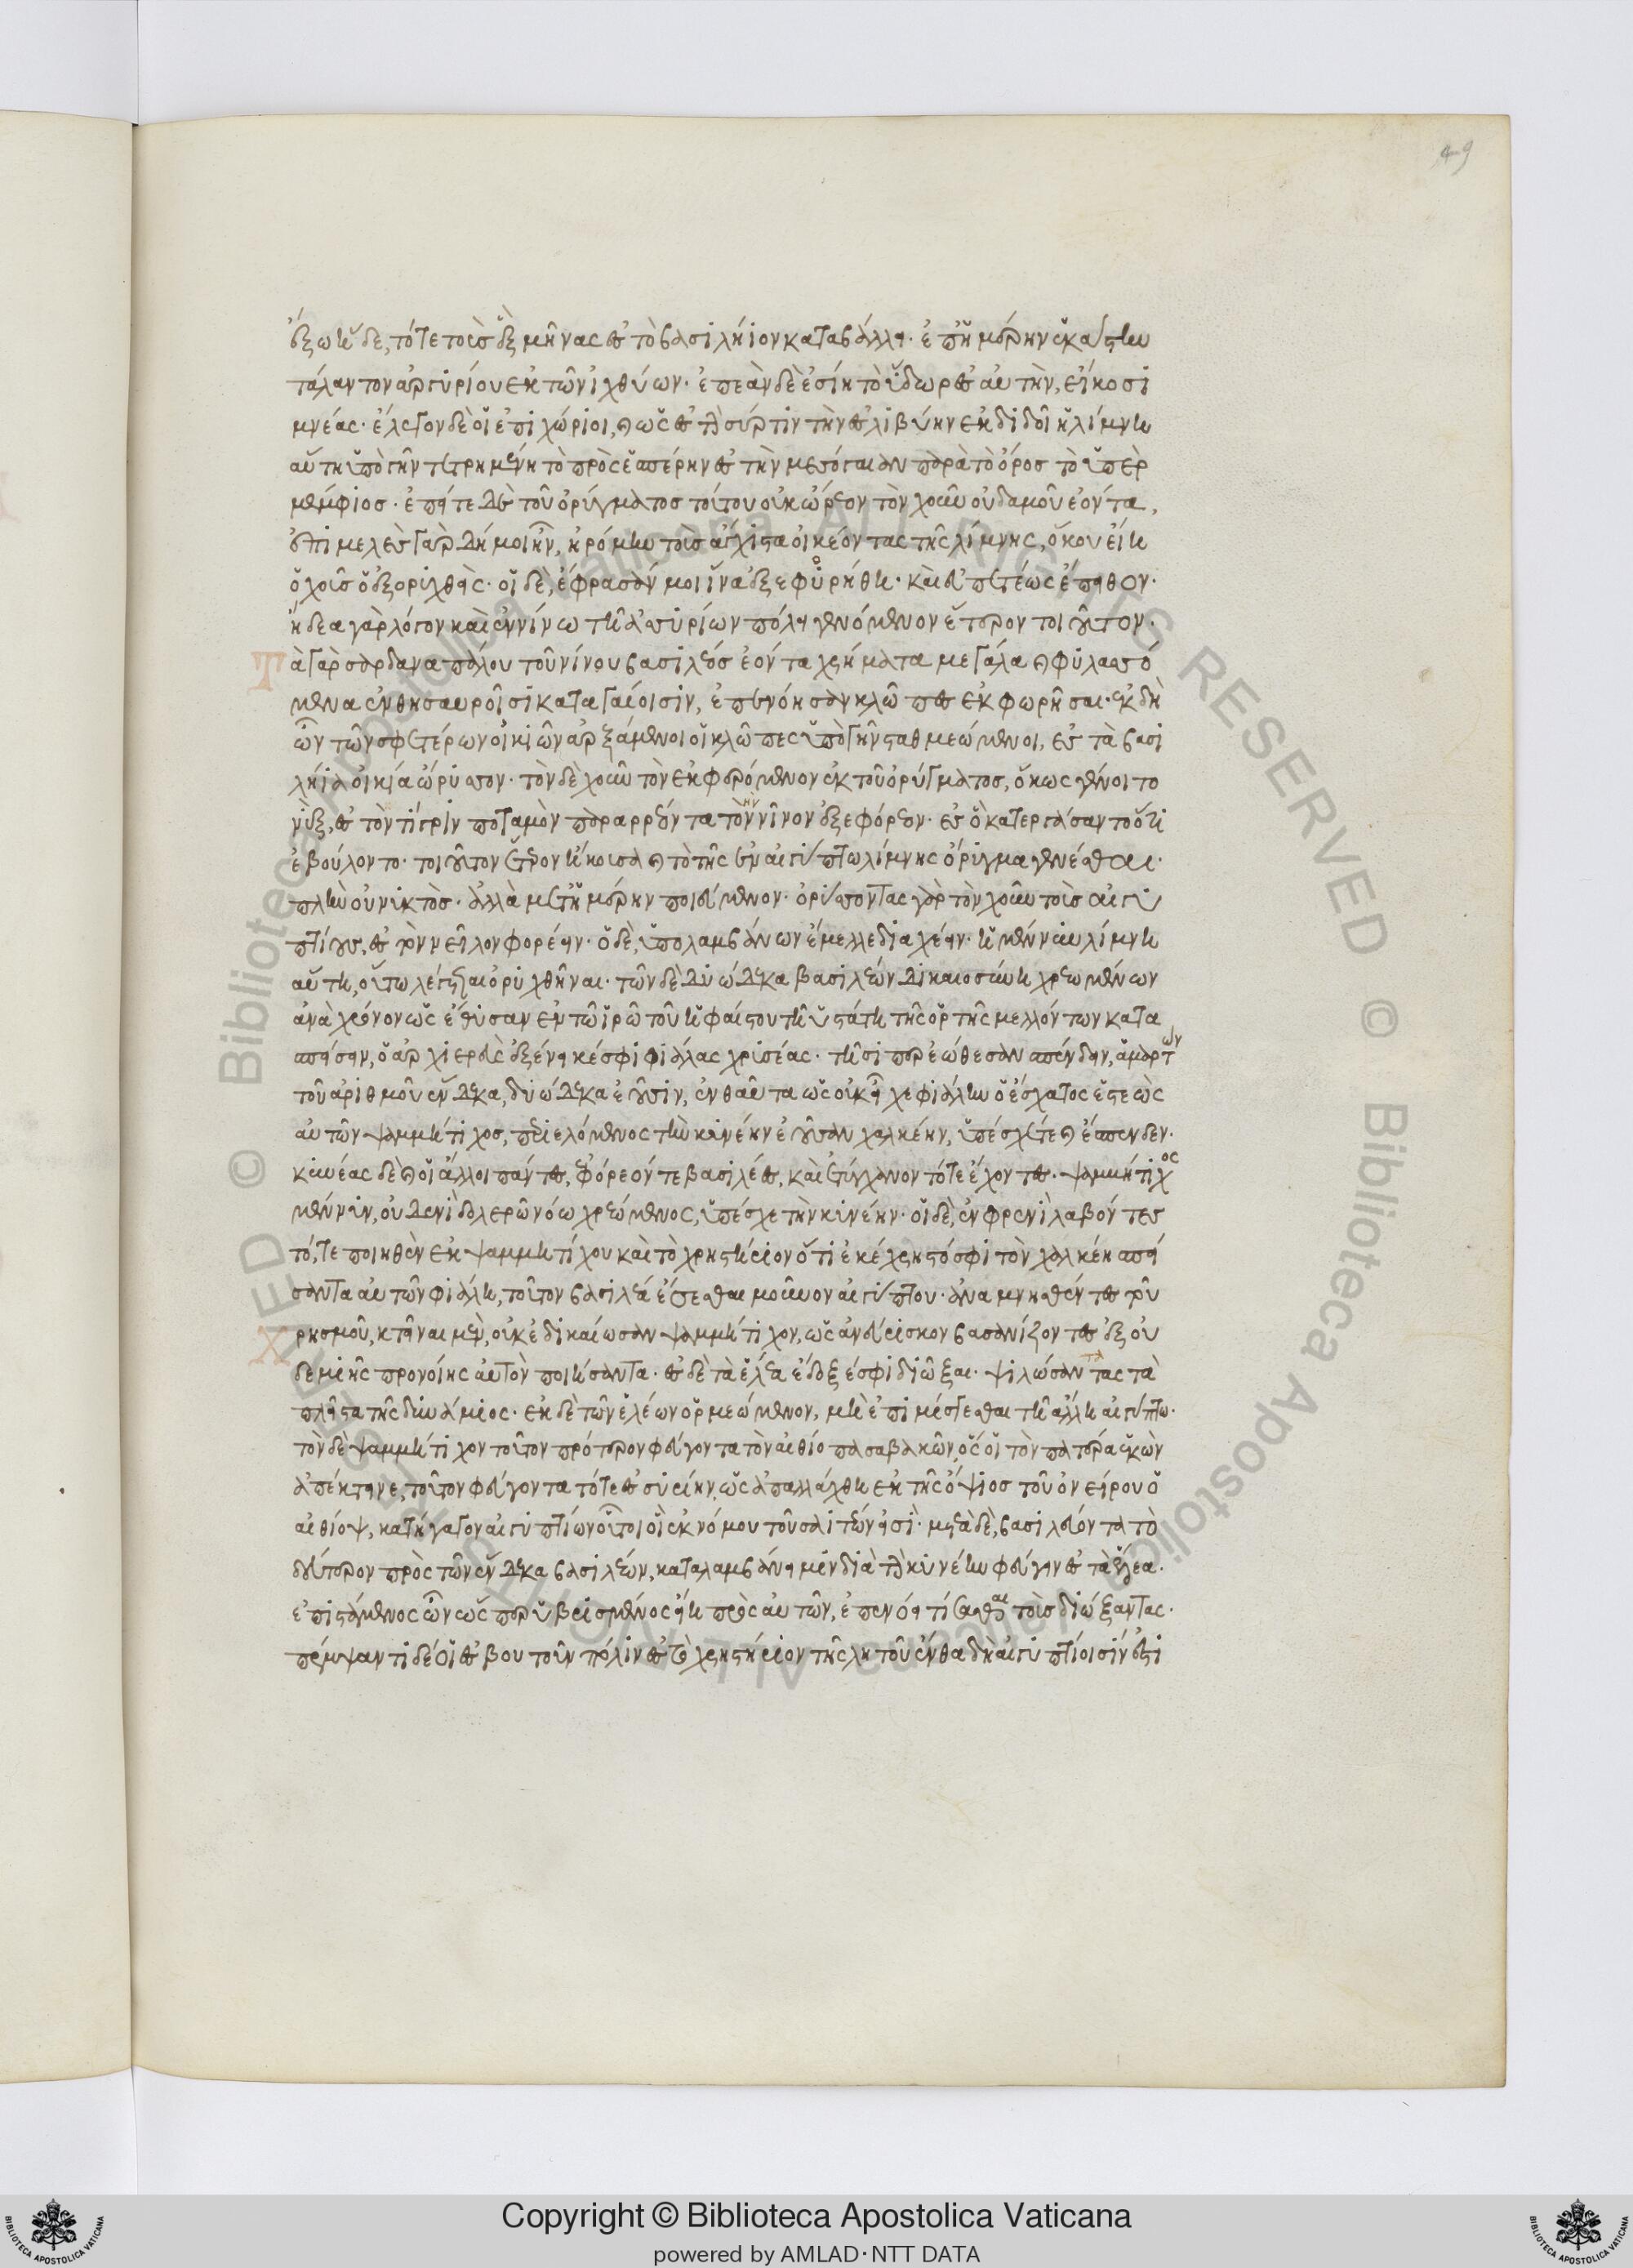 49
ἔξω ἤ δε, τότε τοὺς ἓξ μῆνας ἐς τὸ βασιλήιον καταβάλλει· ἐπ' ἡμέρην ἑκάστην
τάλαντον ἀργυρίου ἐκ τῶν ἰχθύων· ἐπεὰν δὲ ἐσίη τὸ ὕδωρ ἐς αὐτὴν, εἴκοσι
μνέας· ἔλεγον δὲ οἱ ἐπιχώριοι, καὶ ὡς ἐς τὴν σύρτιν τὴν ἐς λιβύην ἐκδιδοῖ ἡ λίμνη
αὕτη ὑπὸ γῆν τετρημένη τὸ πρὸς ἑσπέρην ἐς τὴν μεσόγαιαν παρὰ τὸ ὄρος τὸ ὑπὲρ
μέμφιος· ἐπείτε δὲ τοῦ ὀρύγματος τούτου οὐκ ὥρεον τὸν χοῦν οὐδαμοῦ ἐόντα,
ἐπιμελὲς γὰρ δή μοι ἦν, ἠρόμην τοὺς ἄγχιστα οἰκέοντας τῆς λίμνης, ὅκου εἴη
ὁ χοῦς ὁ ἐξορυχθείς· οἱ δὲ, ἔφρασάν μοι ἵνα ἐξεφορήθη· καὶ εὐπετέως ἔπειθον·
ἤδεα γὰρ λόγον καὶ ἐν νίνω τῆ ἀσσυρίων πόλει γενόμενον ἕτερον τοιοῦτον·
Τὰ γὰρ σαρδαναπάλου τοῦ νίνου βασιλέος ἐόντα χρήματα μεγάλα καὶ φυλασσό
μενα ἐν θησαυροῖσι καταγαίοισιν, ἐπενόησαν κλῶπες ἐκφωρῆσαι· ἐκ δὴ
ὦν τῶν σφετέρων οἰκιῶν ἀρξάμενοι οἱ κλῶπες ὑπὸ γῆν σταθμεώμενοι, ἐς τὰ βασι
λήια οἰκία ὤρυσσον· τὸν δὲ χοῦν τὸν ἐκφορεόμενον ἐκ τοῦ ὀρύγματος, ὅκως γένοιτο
νὺξ, ἐς τὸν τίγριν ποταμὸν παραρρέοντα τὸν νῖνον ἐξεφόρεον· ἐς ὃ κατεργάσαντο ὅτι
ἐβούλοντο· τοιοῦτον ἕτερον ἤκουσα καὶ τὸ τῆς ἐν αἰγύπτω λίμνης ὄρυγμα γενέσθαι·
πλὴν οὐ νυκτὸς· ἀλλὰ μετ' ἡμέρην ποιεύμενον· ὀρύσσοντας γὰρ τὸν χοῦν τοὺς αἰγυ
πτίους, ἐς τὸν νεῖλον φορέειν· ὁ δὲ, ὑπολαμβάνων ἔμελλε διαχέειν· ἡ μέν νυν λίμνη
αὕτη, οὕτω λέγεται ὀρυχθῆναι· τῶν δὲ δυώδεκα βασιλέων δικαιοσύνη χρεωμένων
ἀνὰ χρόνον ὡς ἔθυσαν ἐν τῶ ἱρῶ τοῦ ἡφαίστου τῆ ὑστάτη τῆς ὁρτῆς μελλόντων κατα
σπείσειν, ὁ ἀρχιερεὺς ἐξένεικέ σφι φιάλας χρυσέας· τῆσί περ ἐώθεσαν σπένδειν, ἁμαρτὼν
τοῦ ἀριθμοῦ ἕνδεκα, δυώδεκα ἐοῦσιν, ἐνθαῦτα ὡς οὐκ εἶχε φιάλην ὁ ἔσχατος ἑστεὼς
αὐτῶν ψαμμήτιχος, περιελόμενος τὴν κυνέην ἐοῦσαν χαλκέην, ὑπέσχετε καὶ ἔσπενδεν·
κυνέας δὲ καὶ οἱ ἄλλοι πάντες, ἐφόρεόν τε βασιλέες, καὶ ἐτύγχανον τότε ἔχοντες· ψαμμήτιχος
μέν νυν, οὐδενὶ δολερῶ νόω χρεώμενος, ὑπέσχε τὴν κυνέην· οἱ δὲ, ἐν φρενὶ λαβόντες
τό, τε ποιηθὲν ἐκ ψαμμητίχου καὶ τὸ χρηστήριον ὅτι ἐκέχρηστό σφι τὸν χαλκέη σπεί
σαντα αὐτῶν φιάλη, τοῦτον βασιλέα ἔσεσθαι μοῦνον αἰγύπτου· ἀναμνησθέντες τοῦ
Χρησμοῦ, κτεῖναι μὲν, οὐκ ἐδικαίωσαν ψαμμήτιχον, ὡς ἀνεύρισκον βασανίζοντες ἐξ οὐ
δεμιῆς προνοίης αὐτὸν ποιήσαντα· ἐς δὲ τὰ ἕλεα ἔδοξέ σφι διῶξαι· ψιλώσαντας τὰ
πλεῖστα τῆς δυνάμιος· ἐκ δὲ τῶν ἑλέων ὁρμεώμενον, μὴ ἐπιμίσγεσθαι τῆ ἄλλη αἰγύπτω·
τὸν δὲ ψαμμήτιχον τοῦτον πρότερον φεύγοντα τὸν αἰθίοπα σαβακῶν, ὅς οἱ τὸν πατέρα νεκὼν
ἀπέκτεινε, τοῦτον φεύγοντα τότε ἐς συρίην, ὡς ἀπαλλάχθη ἐκ τῆς ὄψιος τοῦ ὀνείρου ὁ
αἰθίοψ, κατήγαγον αἰγυπτίων οὗτοι οἳ ἐκ νόμου τοῦ σαΐτεώ εἰσί· μετὰ δὲ, βασιλεύοντα τὸ
δεύτερον πρὸς τῶν ἕνδεκα βασιλέων, καταλαμβάνει μιν διὰ τὴν κυνέην φεύγειν ἐς τὰ ἕλεα·
ἐπιστάμενος ὦν ὡς περιυβρισμένος εἴη πρὸς αὐτῶν, ἐπενόει τίσασθαι τοὺς διώξαντας·
πέμψαντι δέ οἱ ἐς βουτοῦν πόλιν ἐς τὸ χρηστήριον τῆς λητοῦς ἔνθα δὴ αἰγυπτίοισίν ἐστι
Copyright © Biblioteca Apostolica Vaticana
powered by AMLAD·NTT DATA